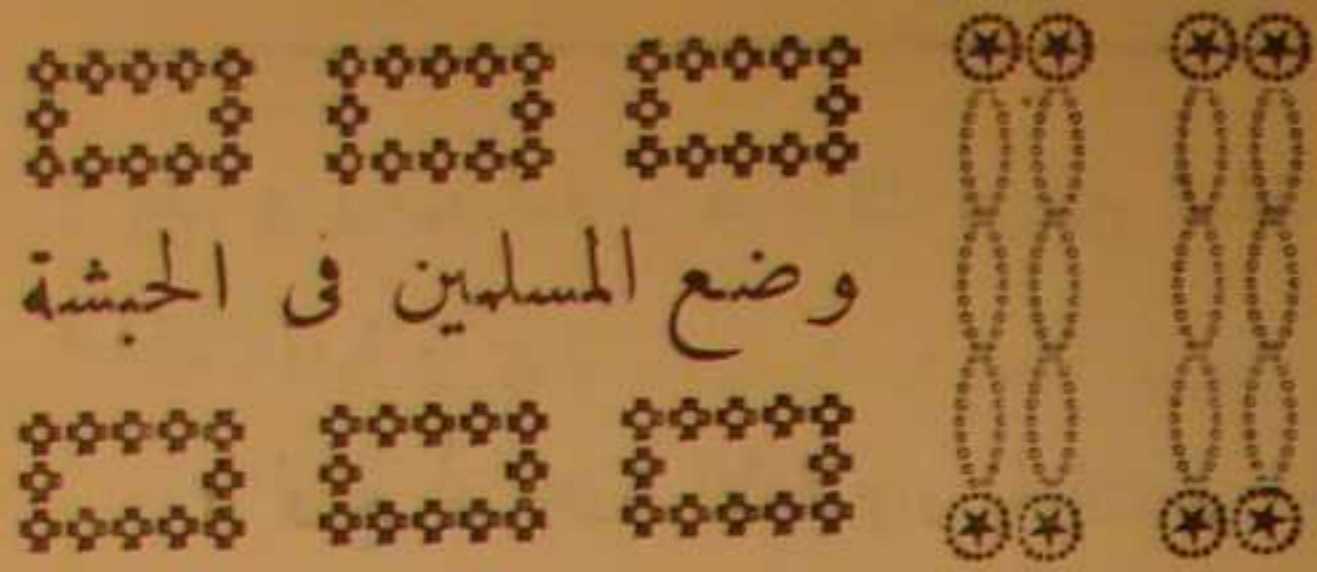 وضع المسلمين فى الحبشة